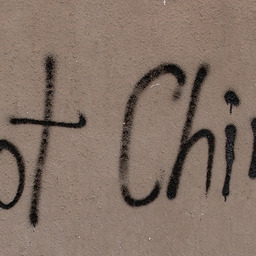 ot Chi